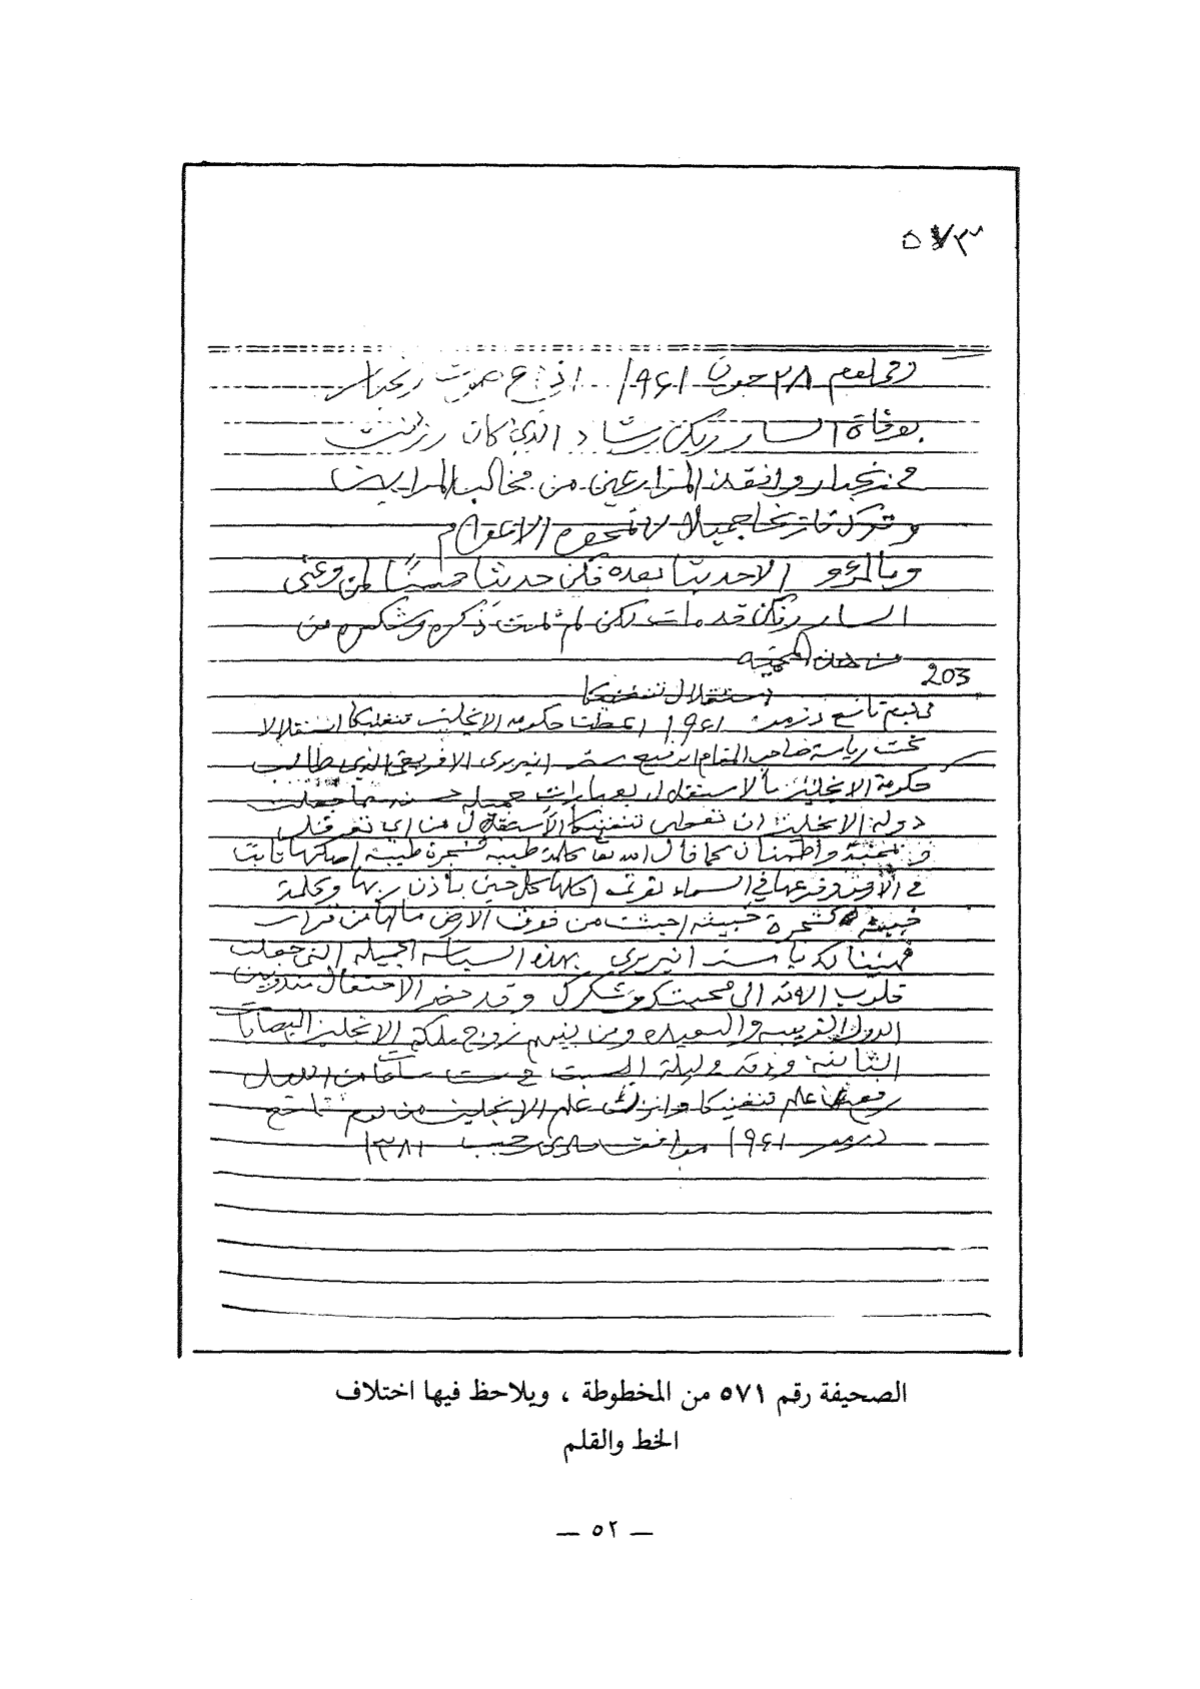 ٥٧٣
وفي يوم ٢٨ جون ١٩٦١ اذاع صوت زنجبار
بوفاة السار رنكن رشاد الذي كان رزلنت
في زنجبار وانقذ المزارعين من مخالب المرابين
وترك تاريخا جميلا لا تمحوه الاعوام
وبالمرء الا حديثا بعده فكن حديثا حسنا لمن وعى
السار رنكن قد مات لكن لم يمت ذكره وشكره من
من هذه المحمية
203
استقلال تنغنيكا
في يوم تاسع دزمبر ١٩٦١ اعطت حكومة الانجليز تنغنيكا استقلالا
تحت رياسة صاحب المقام الرفيع مستر انيريري الافريقي الذي طالب
حكومة الانجليز بالاستقلال بعبارات جميلة حسنة مما جعلت
دولة الانجليز ان تعطي تنغنيكا الاستقلال من اي تعرقل
و بمحبة واطمئنان كما قال الله تعا كلمة طيبة كشجرة طيبة اصلها ثابت
في الارض وفرعها في السماء تؤتي اكلها كل حين باذن ربها وكلمة
خبيثة كشجرة خبيثة اجتثت من فوق الارض مالها من قرار
فهنيئا لك يا مستر انيريري بهذه السياسة الجميلة التي جعلت
قلوب الامة الى محبتك وشكرك وقد حضر الاحتفال مندوبين
الدول القريبة والبعيدة ومن بينهم زوج ملكة الانجليز اليصابات
الثانية وفي ليلة السبت في ست ساعات الليل
رفع علم تنغنيكا وانزل علم الانجليز من يوم تاسع
دزمبر ١٩٦١ موافق حادي رجب ١٣٨١
الصحيفة رقم ٥٧١ من المخطوطة ، ويلاحظ فيها اختلاف
الخط والقلم
— ٥٢ —